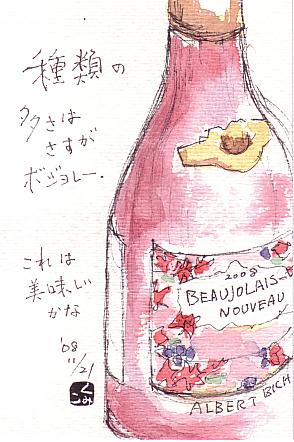 種類の
多さは
さすが
ボジョレー.
これは
美味しい
かな
'08
11/21
くみこ
2008
BEAUJOLAIS
NOUVEAU
ALBERT BICH